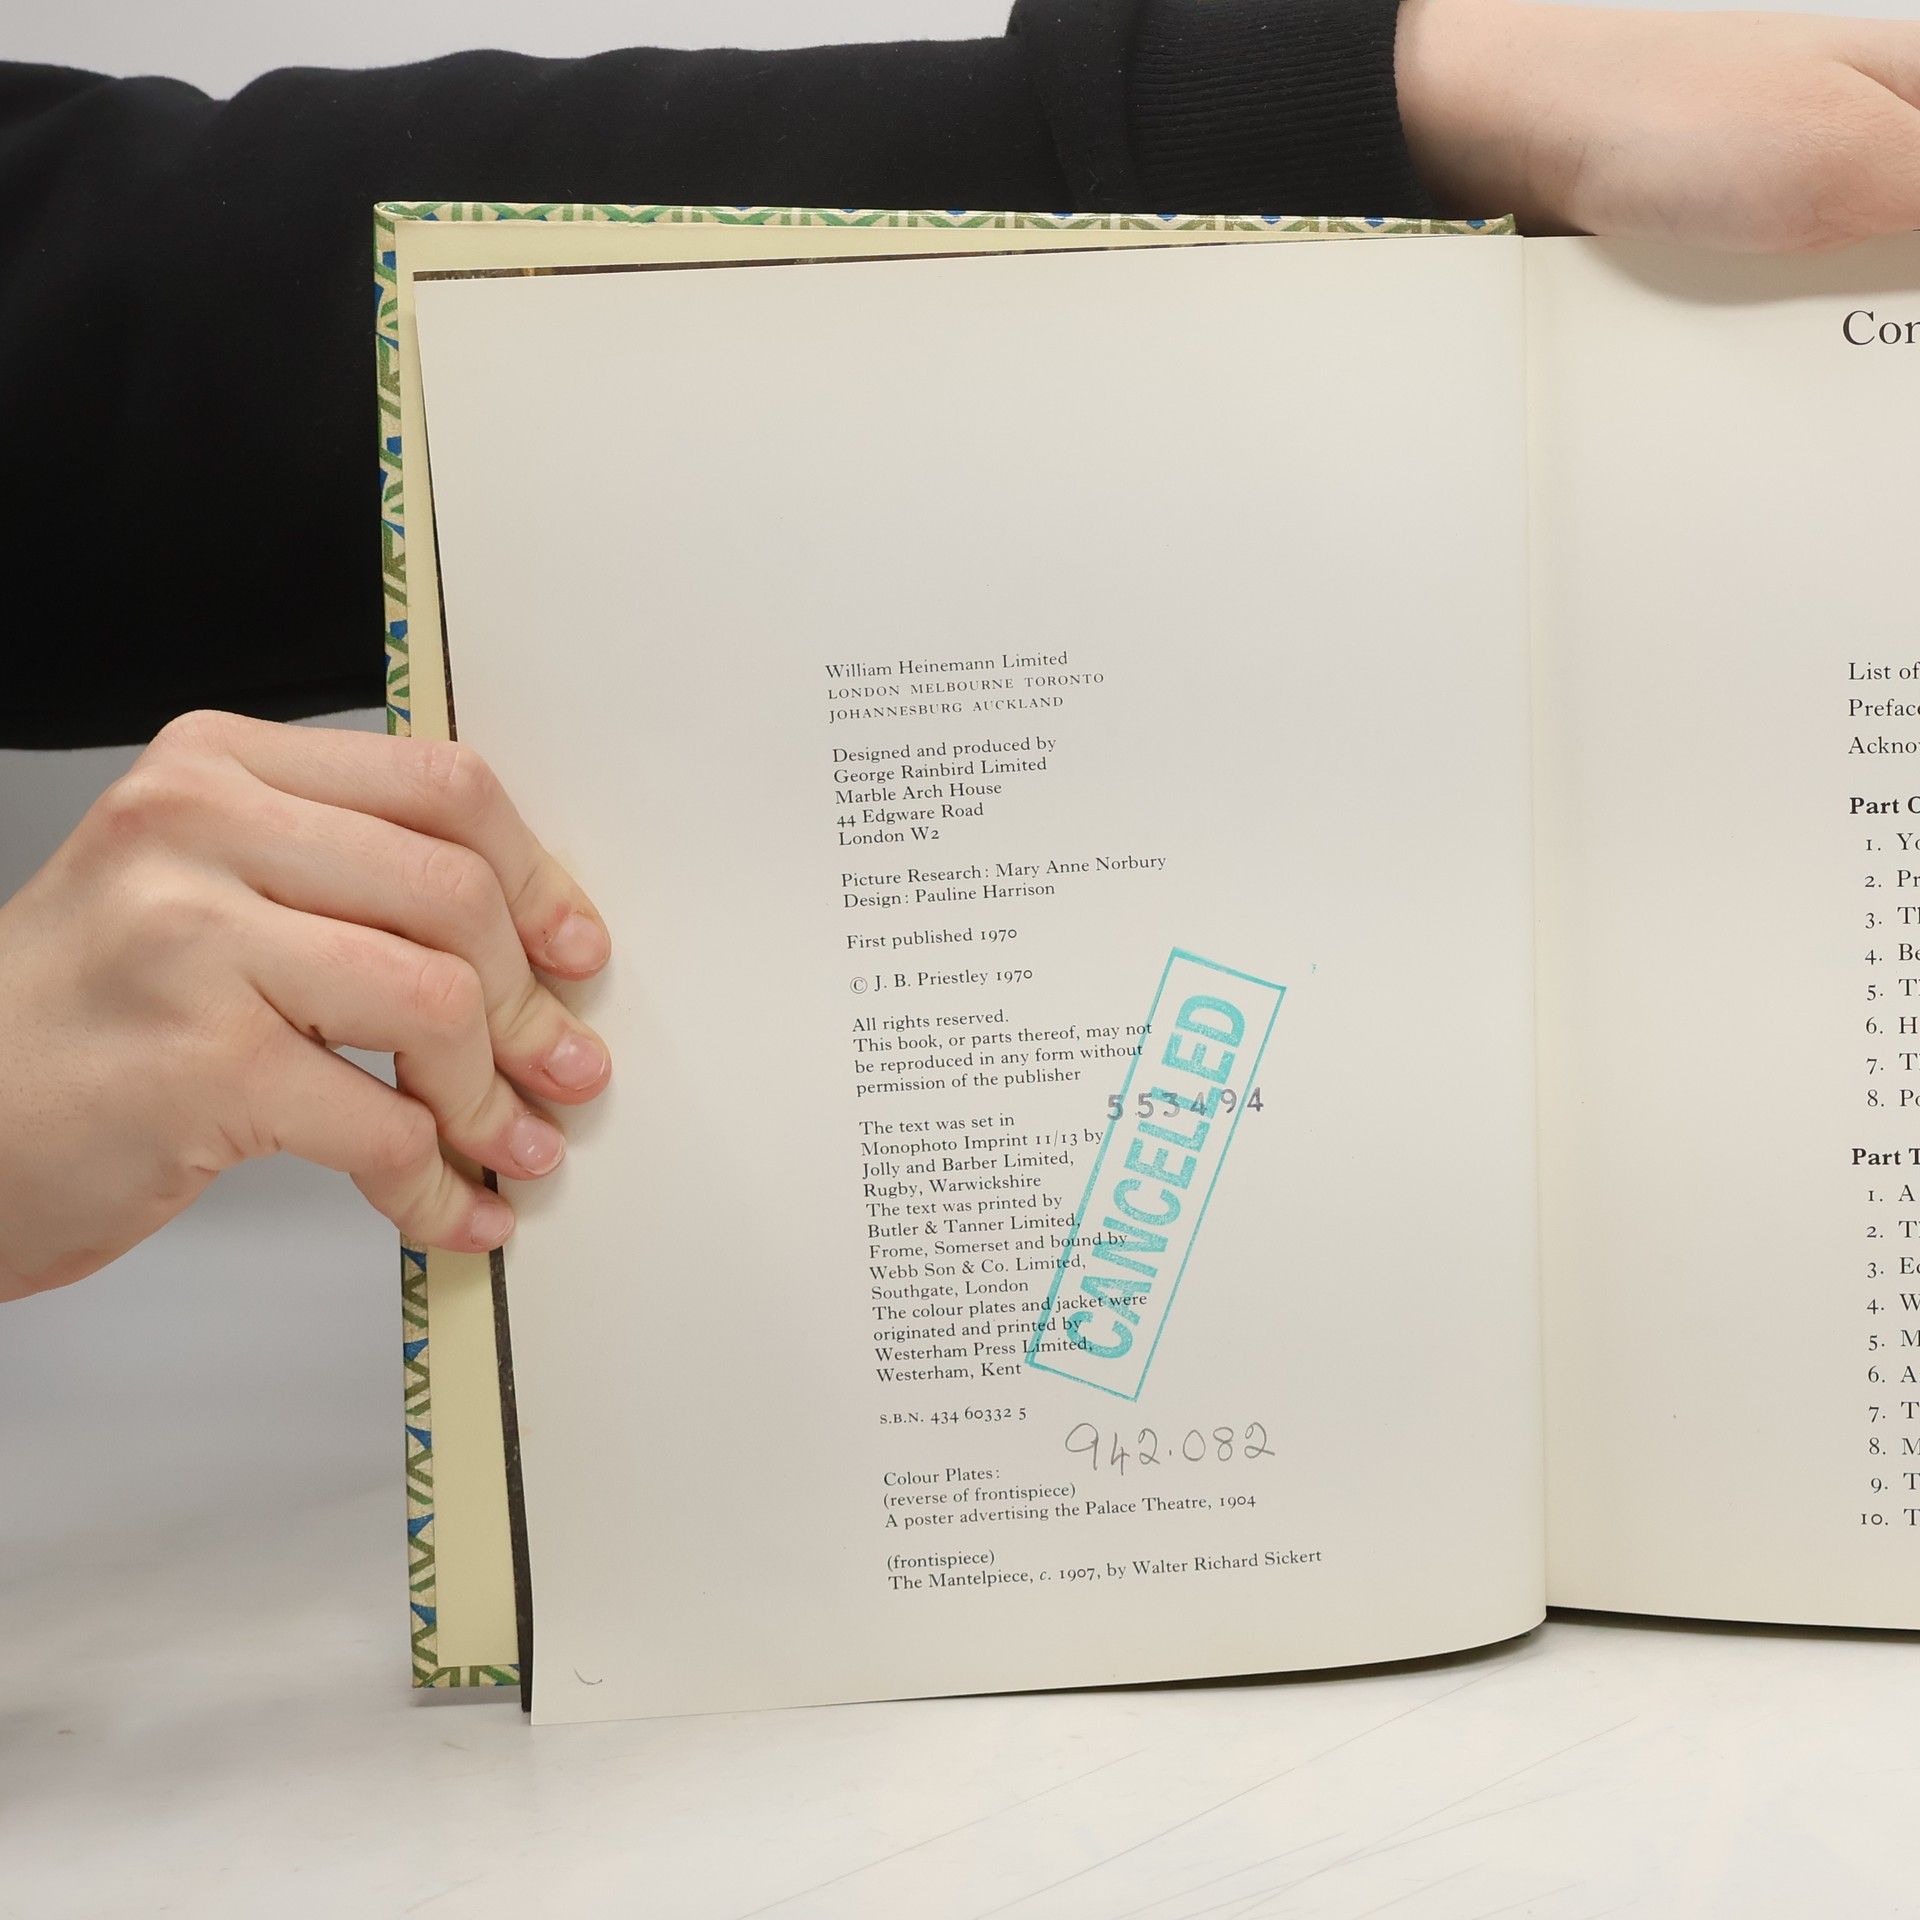 William Heinemann Limited
LONDON MELBOURNE TORONTO
JOHANNESBURG AUCKLAND
Designed and produced by
George Rainbird Limited
Marble Arch House
44 Edgware Road
London W2
Picture Research: Mary Anne Norbury
Design: Pauline Harrison
First published 1970
© J. B. Priestley 1970
All rights reserved.
This book, or parts thereof, may not
be reproduced in any form without
permission of the publisher
The text was set in
Monophoto Imprint 11/13 by
Jolly and Barber Limited,
Rugby, Warwickshire
The text was printed by
Butler & Tanner Limited,
Frome, Somerset and bound by
Webb Son & Co. Limited,
Southgate, London
The colour plates and jacket were
originated and printed by
Westerham Press Limited,
Westerham, Kent
S.B.N. 434 60332 5
CANCELLED
553494
942.082
Colour Plates:
(reverse of frontispiece)
A poster advertising the Palace Theatre, 1904
(frontispiece)
The Mantelpiece, c. 1907, by Walter Richard Sickert
List of
Part
1.
2.
3.
4.
5.
6.
7.
8.
Part
1. A
2.
3.
4.
5.
6.
7.
8.
9.
10.